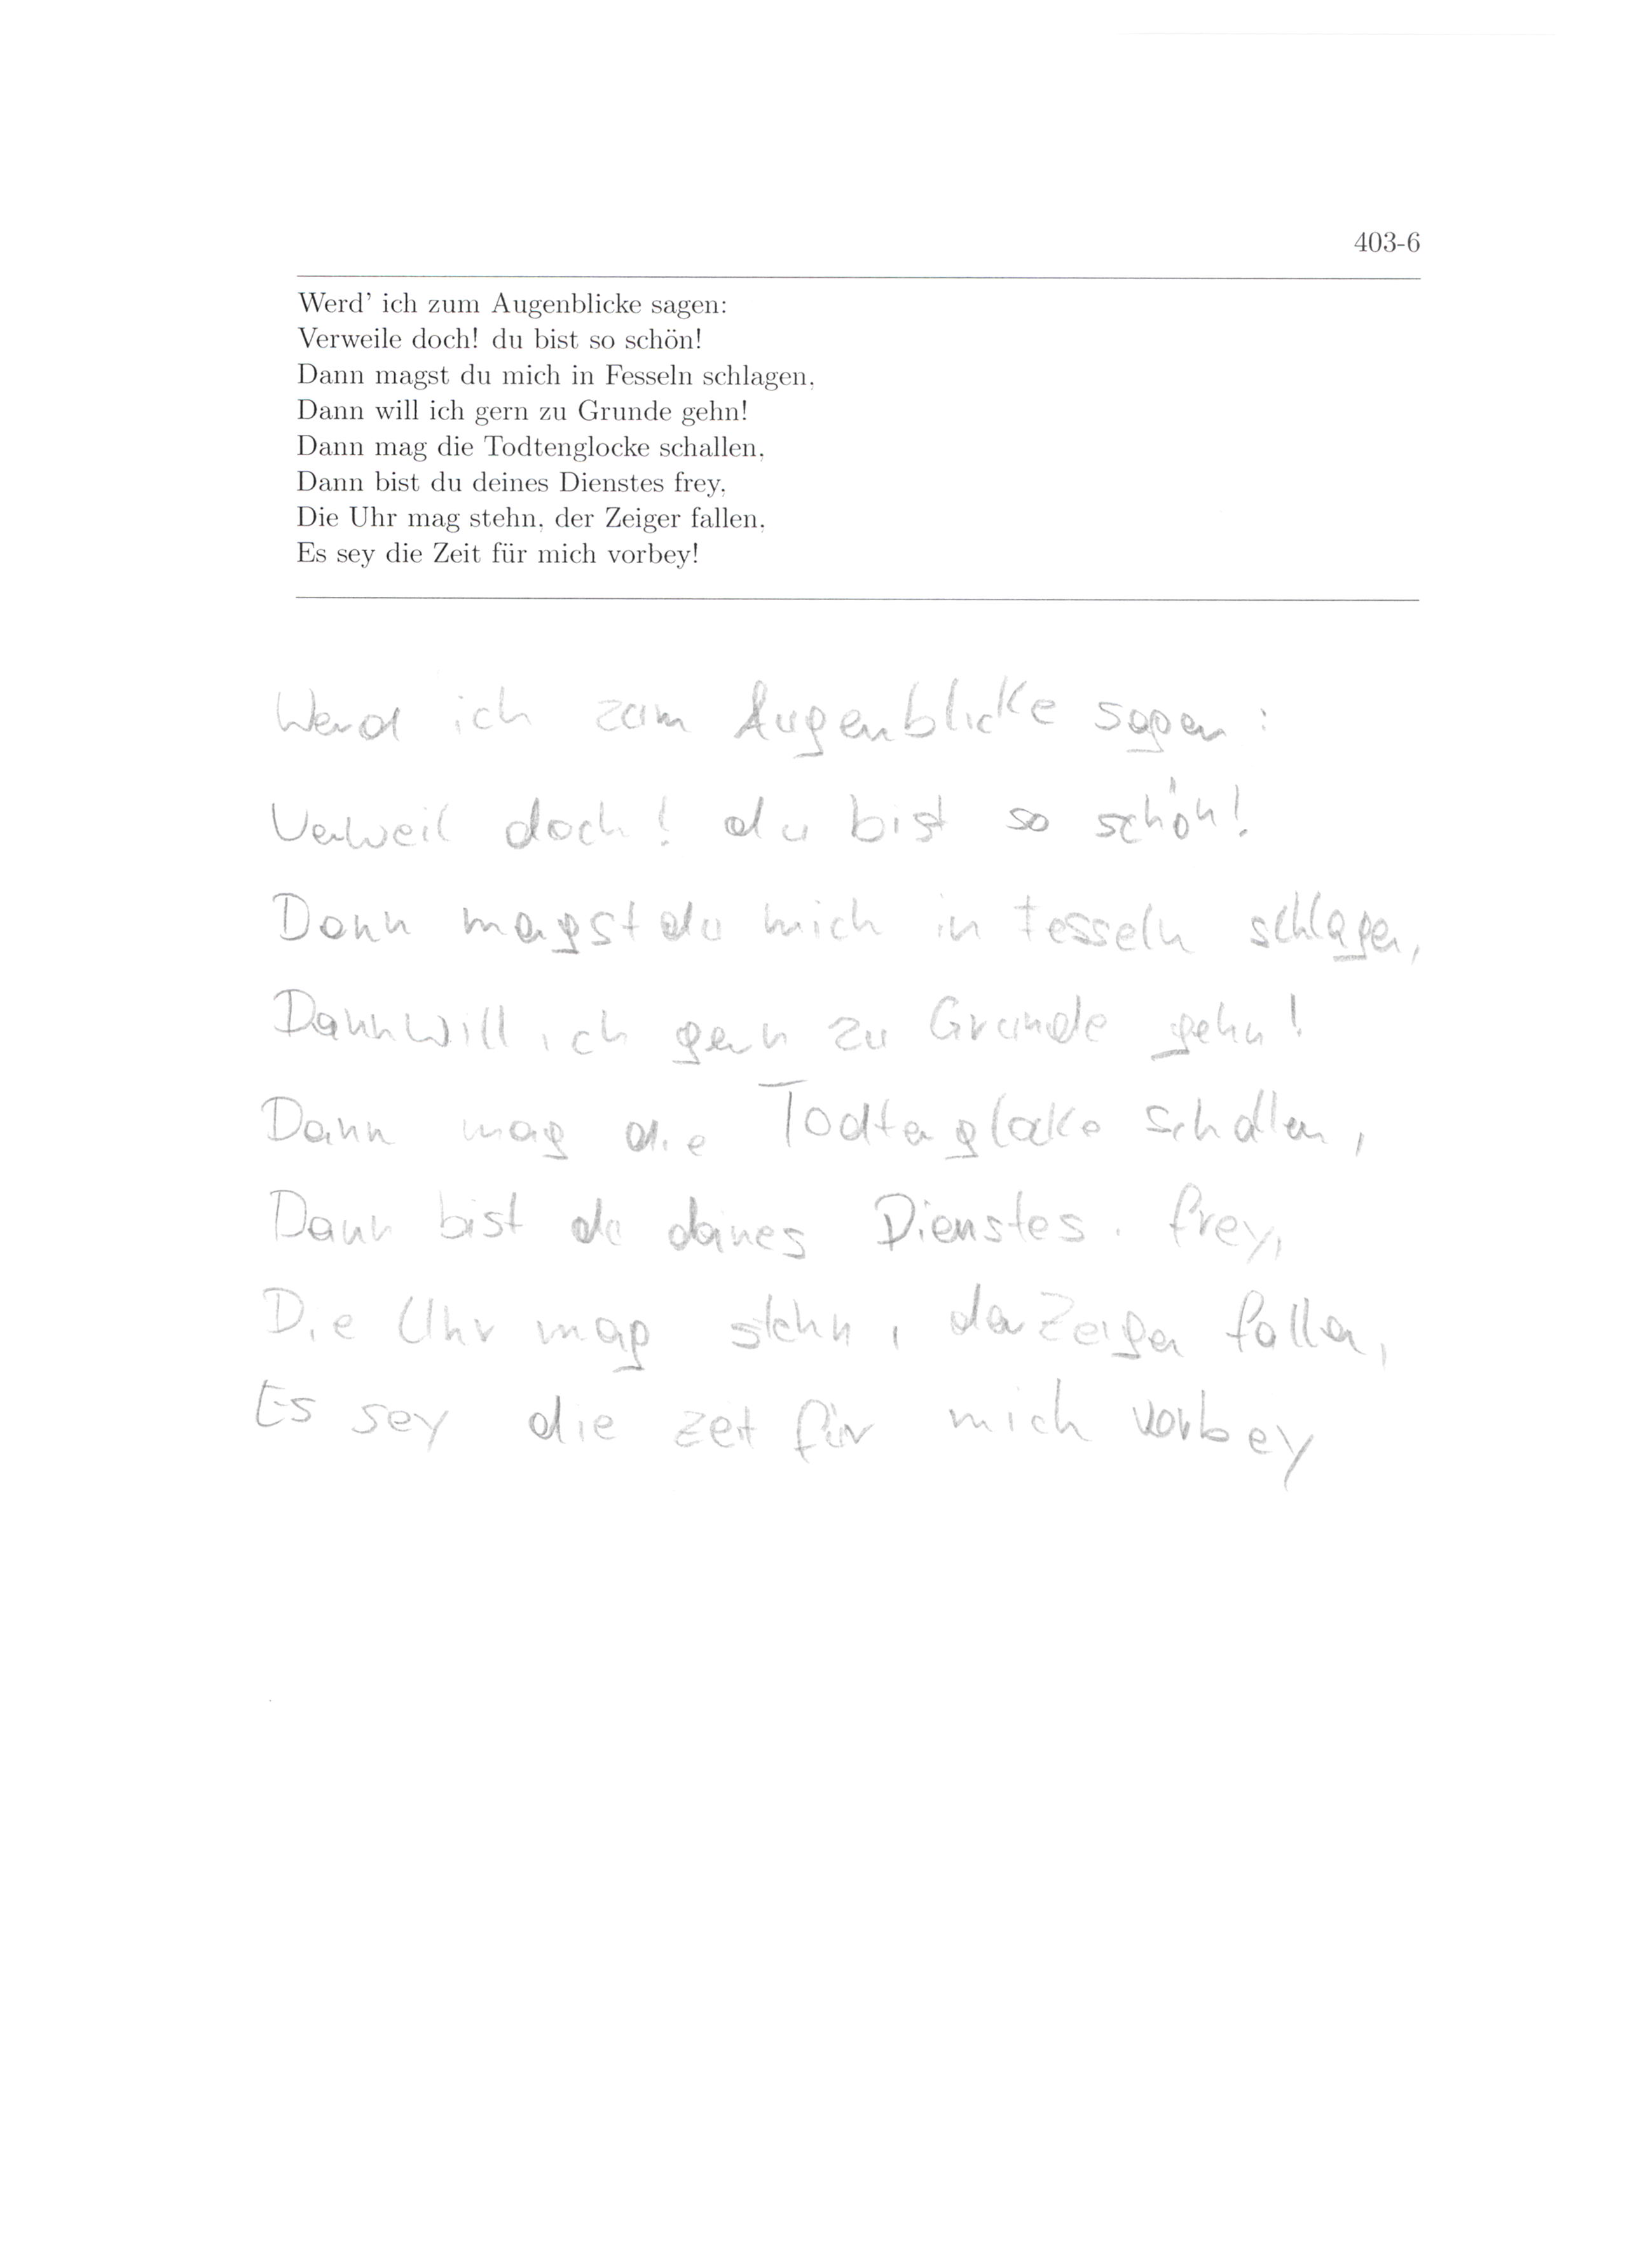 403-6
Werd' ich zum Augenblicke sagen:
Verweile doch! du bist so schön!
Dann magst du mich in Fesseln schlagen,
Dann will ich gern zu Grunde gehn!
Dann mag die Todtenglocke schallen,
Dann bist du deines Dienstes frey,
Die Uhr mag stehn, der Zeiger fallen,
Es sey die Zeit für mich vorbey!
Werd ich zum Augenblicke sagen:
Verweil doch! du bist so schön!
Dann magst du mich in Fesseln schlagen,
Dann will ich gern zu Grunde gehn!
Dann mag die Todtenglocke schallen,
Dann bist du deines Dienstes. frey,
Die Uhr mag stehn, der Zeiger fallen,
Es sey die zeit für mich vorbey